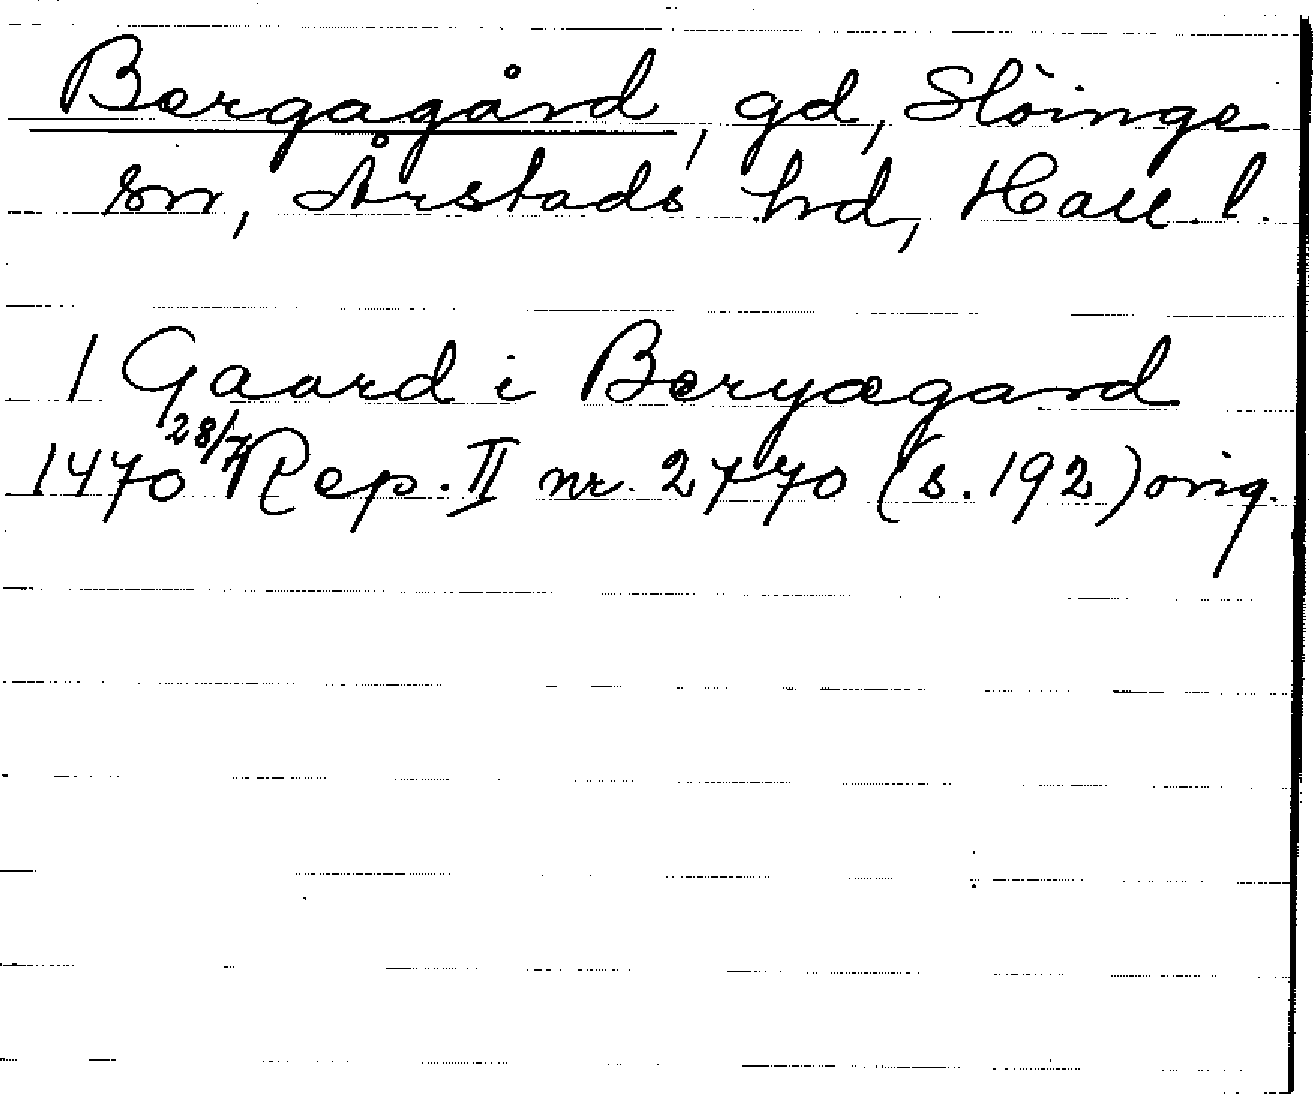 Bergagård, gd, Slöinge
sn, Årstads hd, Hall. l.
1 Gaard i Beryægard
1470 28/7 Rep. II nr. 2770 (s. 192) orig.